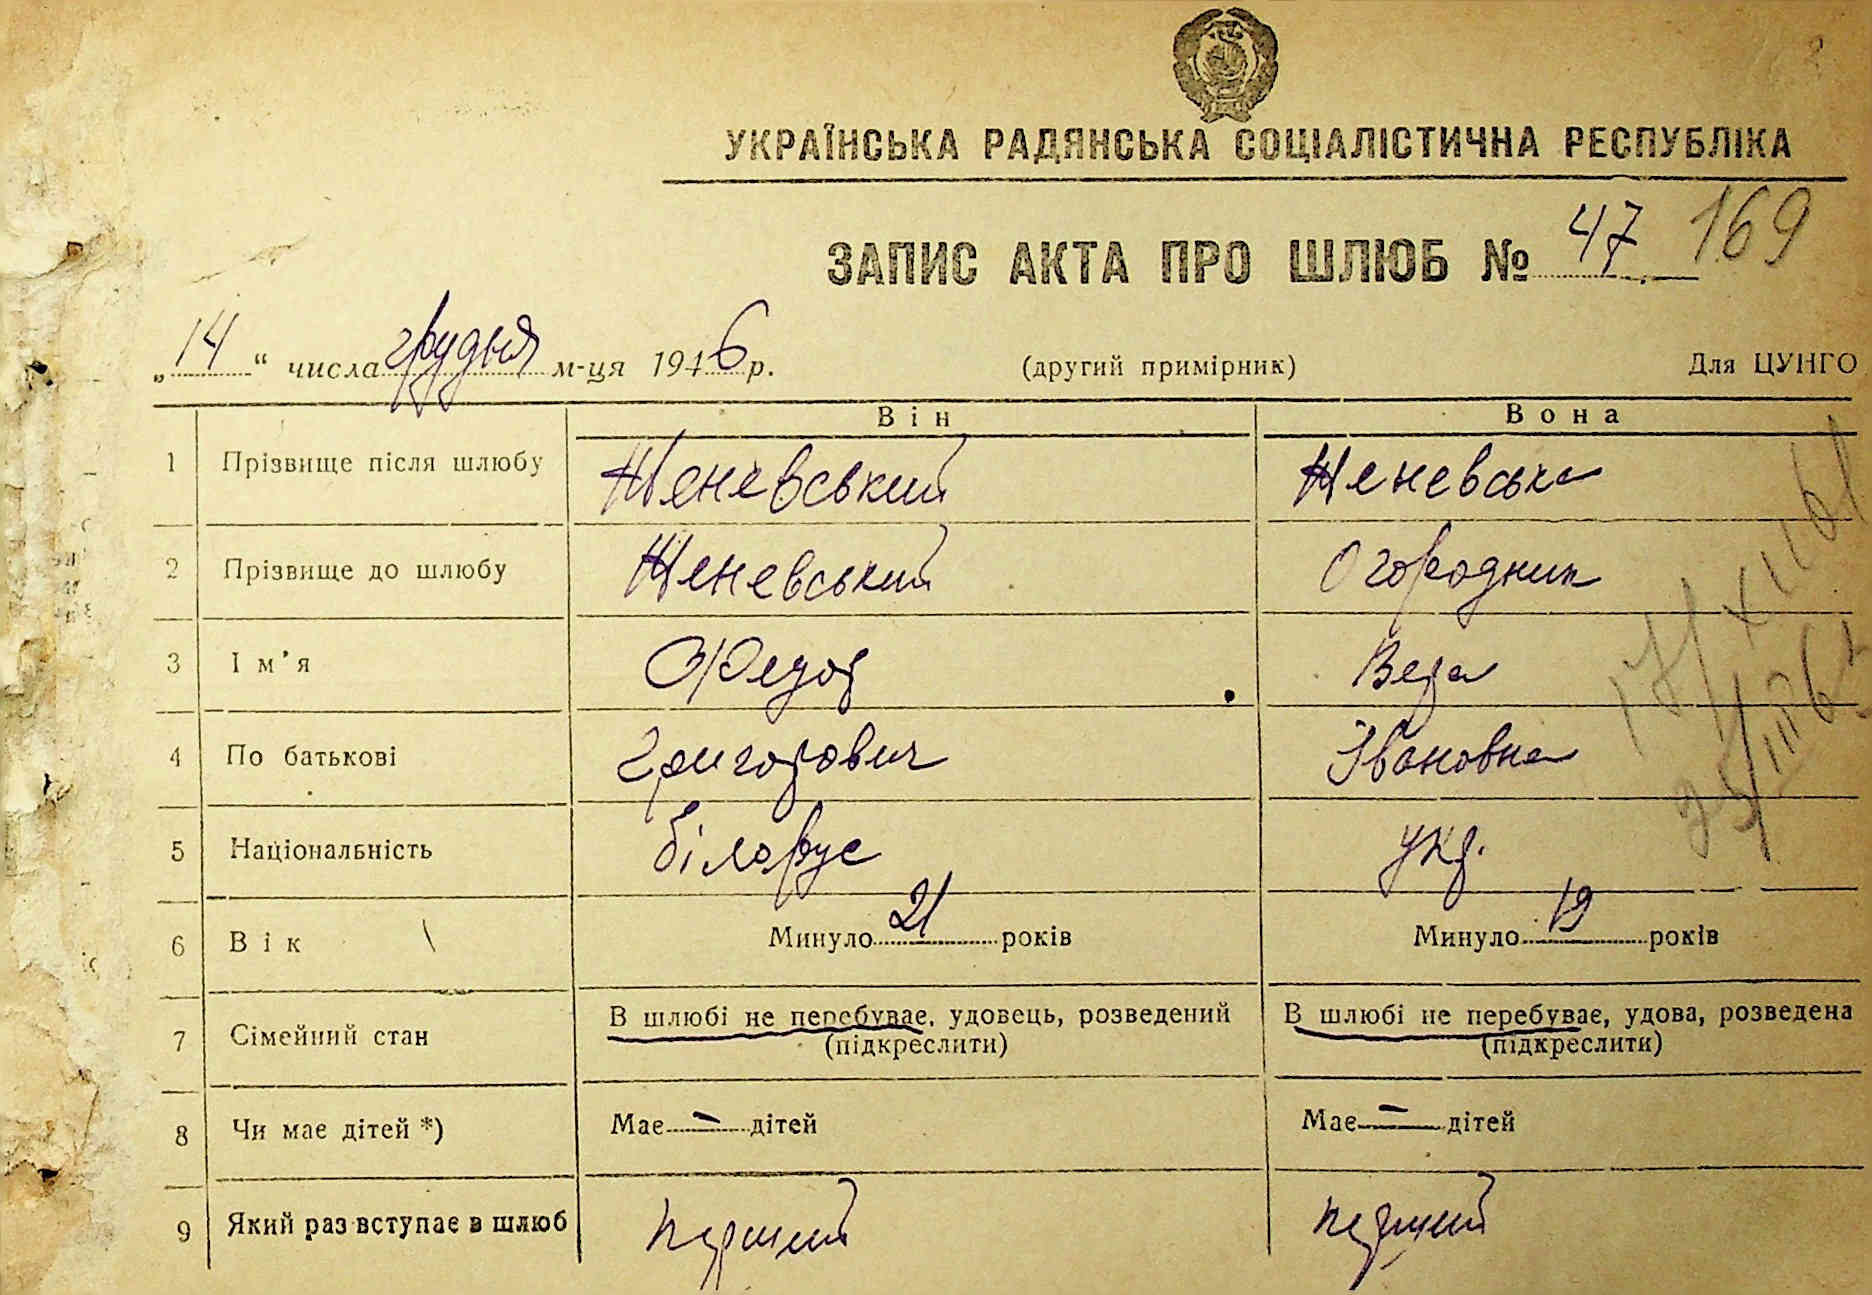 УКРАЇНСЬКА РАДЯНСЬКА СОЦІАЛІСТИЧНА РЕСПУБЛІКА
ЗАПИС АКТА ПРО ШЛЮБ № 47. 169
„14“ числа грудня м-ця 1946 р. (другий примірник) Для ЦУНГО
Він Вона
1 Прізвище після шлюбу Женевський Женевська
2 Прізвище до шлюбу Женевський Огородник
3 Ім'я Федор Вера
4 По батькові Григорович Івановна
5 Національність білорус укр.
6 Вік Минуло 21 років Минуло 19 років
7 Сімейний стан В шлюбі не перебуває, удовець, розведений В шлюбі не перебуває, удова, розведена
(підкреслити) (підкреслити)
8 Чи має дітей *) Має — дітей Має — дітей
9 Який раз вступає в шлюб перший перший